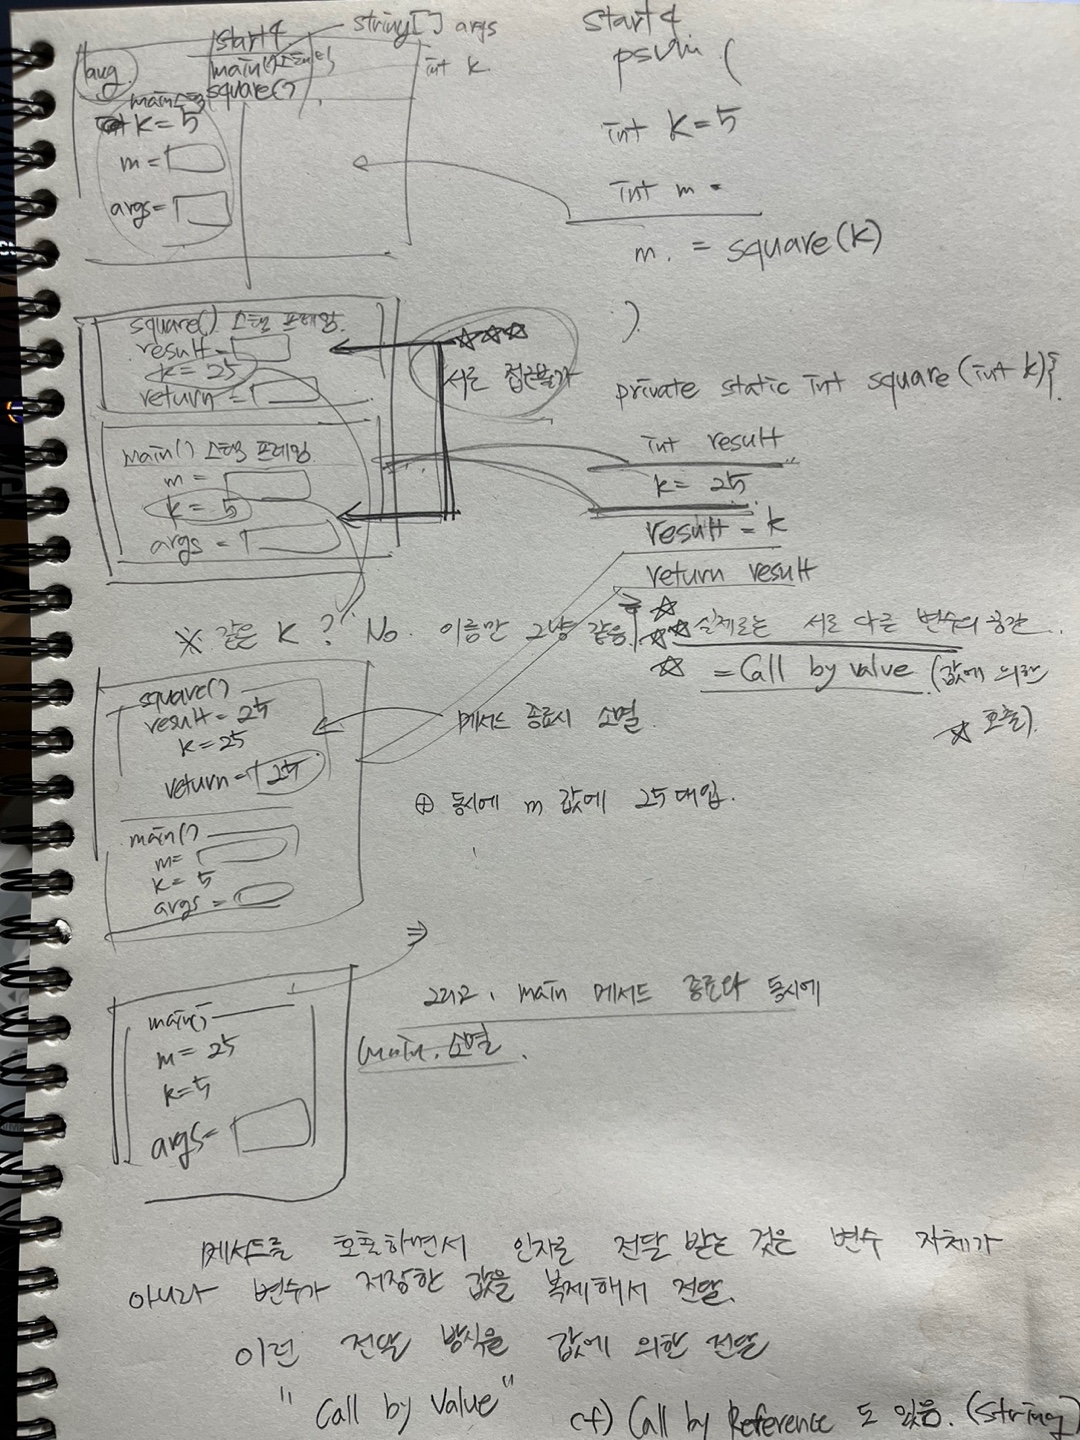 string[] args
start4
java
main()
square()
int k
main스택
k = 5
m =
args =
start4
psvm (
int k = 5
int m =
m. = square(k)
)
square() 스택 프레임
result =
k = 25
return =
main() 스택 프레임
m =
k = 5
args =
☆☆☆
서로 접근불가
private static int square (int k){
int result
k = 25
result = k
return result
※ 같은 k ? No. 이름만 그냥 같음
☆☆☆☆ 실제로는 서로 다른 변수의 공간..
= Call by value (값에 의한
☆ 호출).
square()
result = 25
k = 25
return = 25
메서드 종료시 소멸.
⊕ 동시에 m 값에 25 대입.
main()
m =
k = 5
args =
main()
m = 25
k = 5
args =
⇒
그리고, main 메서드 종료와 동시에
main. 소멸.
메서드를 호출하면서 인자로 전달 받는 것은 변수 자체가
아니라 변수가 저장한 값을 복제해서 전달.
이런 전달 방식을 값에 의한 전달
" Call by Value "
cf) Call by Reference 도 있음. (string)